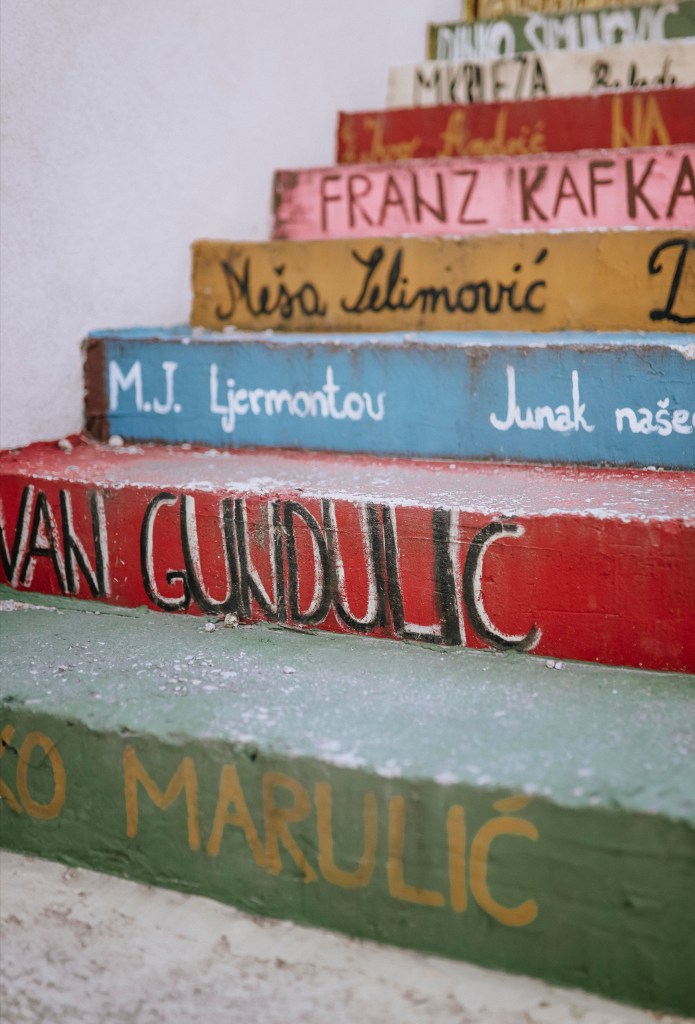 DINKO ŠIMUNOVIĆ
M. KRLEŽA
Ivo Andrić NA
FRANZ KAFKA
Meša Selimović
M.J. Ljermontov Junak naše
VAN GUNDULIĆ
KO MARULIĆ